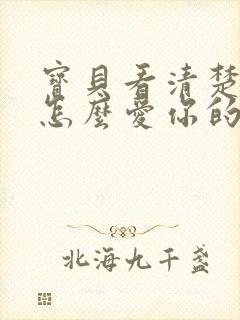 寶貝看清楚
怎麼愛你的
北海九千盞